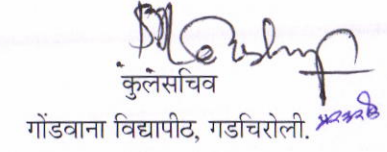 कुलसचिव
गोंडवाना विद्यापीठ, गडचिरोली.